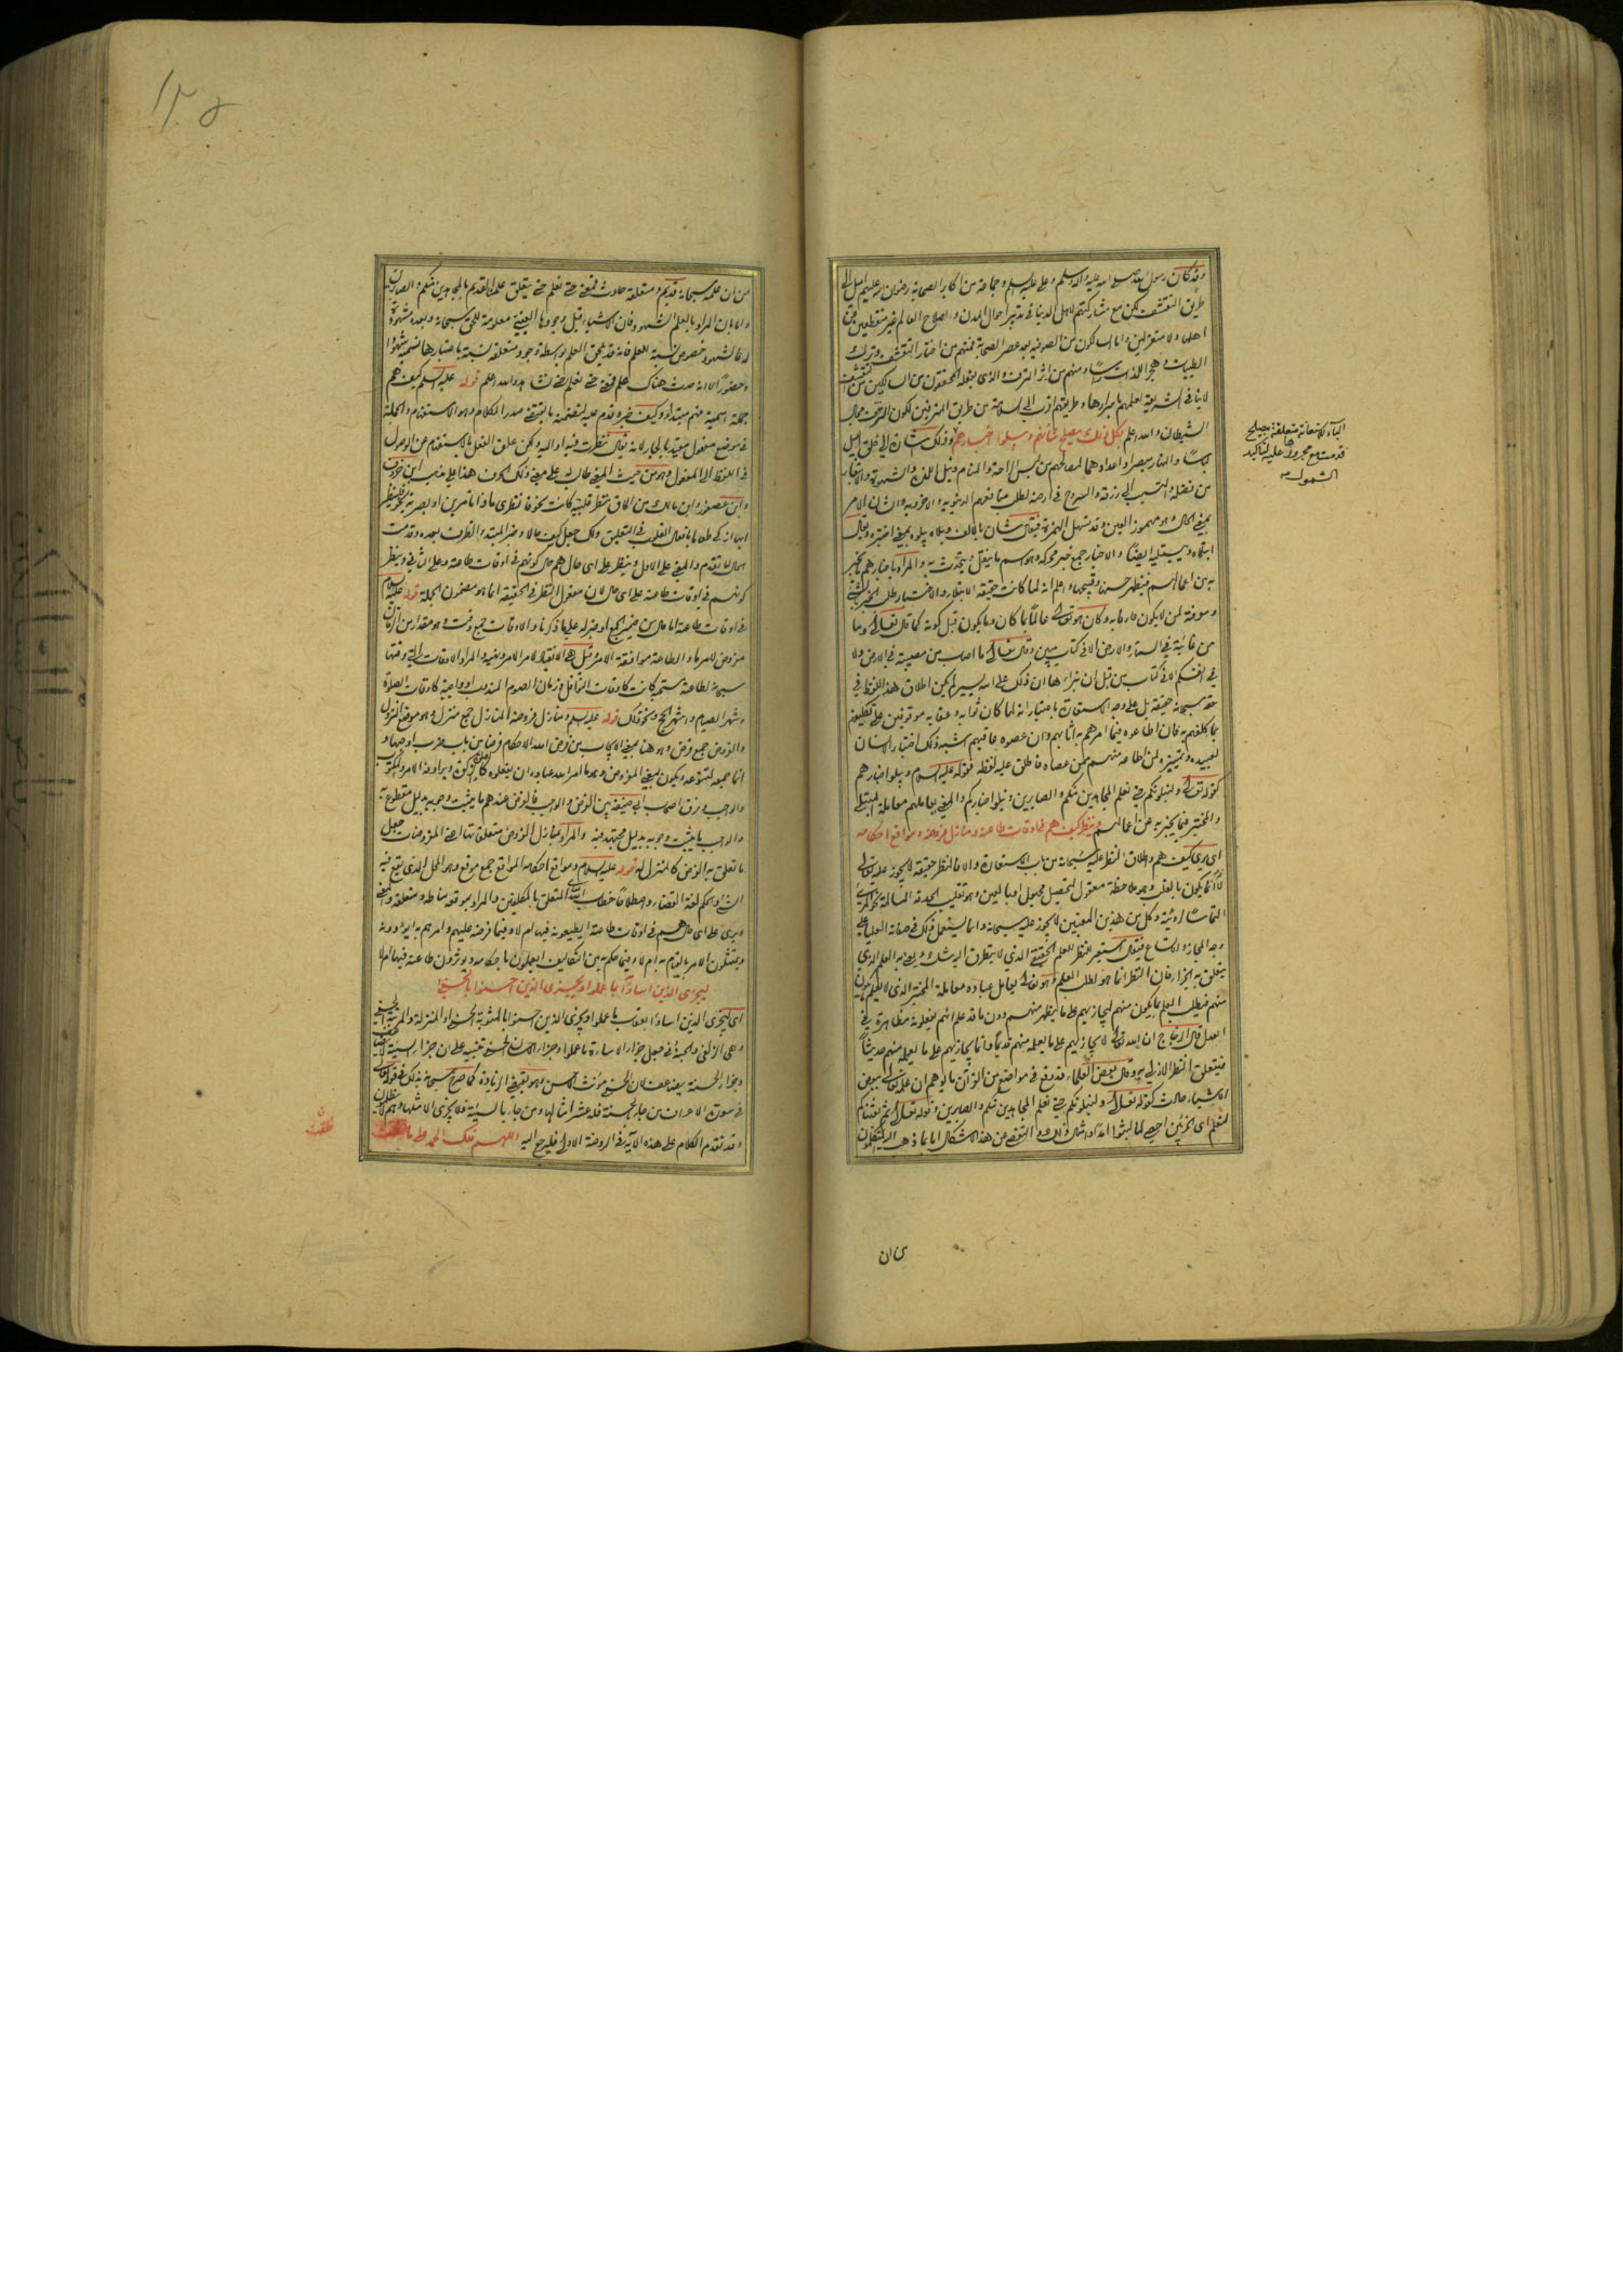 وقد كان رسول الله صلى الله عليه وآله وسلم وعلي عليه السلم وجماعة من اكابر الصحابة رضوان الله عليهم اميل الى
طريق التقشف لكن مع مشاركتهم لاهل الدنيا في تدبير احوال المدن واصلاح العالم غير منقطعين عن
اهلها ولا منعزلين واما السالكون من الصوفية بعد عصر الصحابة فمنهم من اختار التقشف وترك
الطيبات وهجر اللذات ومنهم من اثر الترف والذي يفعله المحققون من السالكين من التقشف
لا ينافي الشريعة لعلمهم باسرارها وطريقتهم اقرب الى السلامة من طريق المترفين لكون الترف مجال
الشيطان والله اعلم بكل ذلك يصلح شأنهم ويبلوا اخبارهم وذلك اشارة الى خلق الليل
لباسا والنهار مبصرا واعدادهما لمصالحهم من لبس الراحة والمنام ونيل اللذة والشهوة والابتغاء
من فضله والتسبب الى رزقه والسروح في ارضه لطلب منافعهم الدنيوية والاخروية والشان الامر
بمعنى الحال وهو مهموز العين وقد تسهل الهمزة فيقال شان بالالف وبلاه يبلوه بمعنى اختبره ويقال
ابتلاه ويبتليه ايضا والاخبار جمع خبر محركة وهو اسم ما ينقل ويتحدث به والمراد باخبارهم ما يخبر
به من اعمالهم فيظهر حسنها وقبيحها واعلم انه لما كانت حقيقة الابتلاء والاختبار طلب الخبر بالشيء
ومعرفته لمن لا يكون عارفا به وكان هو تعالى عالما بما كان وما يكون قبل كونه كما قال تعالى وما
من غائبة في السماء والارض الا في كتاب مبين وقال تعالى ما اصاب من مصيبة في الارض ولا
في انفسكم الا في كتاب من قبل ان نبراها ان ذلك على الله يسير لم يكن اطلاق هذا اللفظ في
حقه سبحانه حقيقة بل على وجه الاستعارة باعتبار انه لما كان ثوابه وعقابه موقوفين على تكليفهم
بما كلفهم به فان اطاعوه فيما امرهم به اثابهم وان عصوه عاقبهم اشبه ذلك اختبار الانسان
لعبيده وتمييزه لمن اطاعه منهم ممن عصاه فاطلق عليه لفظه فقوله عليه السلام ويبلو اخبارهم
كقوله تعالى ولنبلونكم حتى نعلم المجاهدين منكم والصابرين ونبلو اخباركم والمعنى يعاملهم معاملة المبتلي
والمختبر فيما يخبر به عن اعمالهم وينظر كيف هم في اوقات طاعته ومنازل فروضه ومواقع احكامه
اي يرى كيف هم واطلاق النظر عليه سبحانه من باب الاستعارة والا فالنظر حقيقة لا يجوز عليه تعالى
لانه انما يكون بالقلب وهو ملاحظة معقول لتحصيل مجهول او بالعين وهو تقليب الحدقة السالمة نحو المرئي
التماسا لرؤيته وكل من هذين المعنيين لا يجوز عليه سبحانه وانما يستعمل ذلك في صفاته العليا على
وجه المجاز والاتساع فيقال استعير النظر للعلم الحقيقي الذي لا يتطرق اليه شك ويعنى به العلم الذي
يتعلق به الجزاء فان النظر انما هو لطلب العلم وهو تعالى يعامل عباده معاملة المختبر الذي لا يعلم ما يكون
منهم فيطلب العلم بما يكون منهم ليجازيهم على ما يظهر منهم دون ما قد علم انهم يفعلونه مظاهرة في
العدل قال الزجاج ان الله تعالى لا يجازيهم على ما يعلمه منهم قديما وانما يجازيهم على ما يعلمه منهم حديثا
فيتعلق النظر الازلي به وقال بعض العلماء قد وقع في مواضع من القرآن ما يوهم ان علمه تعالى ببعض
الاشياء حادث كقوله تعالى ولنبلونكم حتى نعلم المجاهدين منكم والصابرين وقوله تعالى ثم بعثناهم
لنعلم اي الحزبين احصى لما لبثوا امدا وامثال ذلك والتفصي عن هذا الاشكال اما بما ذهب اليه المتكلمون
الباء للاستعانة متعلقة بيصلح
قدمت مع مجرورها عليه لتأكيد
الشمول منه
من ان
١٣٥
من ان علمه سبحانه قديم ومتعلقه حادث فمعنى حتى نعلم حتى يتعلق علمنا القديم بالمجاهدين منكم والصابرين
واما بان المراد بالعلم الشهود فان الاشياء قبل وجودها العيني معلومة للحق سبحانه وبعده مشهودة
له فالشهود خصوص نسبة العلم فانه قد يلحق العلم بواسطة وجود متعلقه نسبة باعتبارها نسميه شهودا
وحضورا لا انه حدث هناك علم فمعنى حتى نعلم حتى نشاهد والله اعلم قوله عليه السلم كيف هم
جملة اسمية فهم مبتدأ وكيف خبره قدم عليه لتضمنه ما يقتضي صدر الكلام وهو الاستفهام والجملة
في موضع مفعول مقيد بالجار لانه يقال نظرت فيه او اليه ولكن علق الفعل بالاستفهام عن الوصول
في اللفظ الى المفعول وهو من حيث المعنى طالب له على معنى ذلك الحرف هذا على مذهب ابن خروف
وابن عصفور وابن مالك من الحاق نظر قلبية كانت نحو فانظري ماذا تأمرين او بصرية نحو فلينظر
ايها ازكى طعاما بافعال القلوب في التعليق ولك جعل كيف حالا وخبر المبتدأ الظرف بعده وقدمت
الحال لما تقدم والمعنى على الاول وينظر على اي حال هم حال كونهم في اوقات طاعته وعلى الثاني وينظر
كونهم في اوقات طاعته على اي حال لان مفعول النظر في الحقيقة انما هو مضمون الجملة قوله عليه السلام
في اوقات طاعته اما حال من ضمير الجمع او خبر له على ما ذكرنا والاوقات جمع وقت وهو مقدار من الزمان
مفروض لامر ما والطاعة موافقة الامر وقيل هي الانقياد لامر الامر ونهيه والمراد الاوقات التي وقتها
سبحانه لطاعته مستحبة كانت كاوقات النوافل وزمان الصوم المندوب او واجبة كاوقات الصلوة
وشهر الصيام واشهر الحج ونحو ذلك قوله عليه السلم ومنازل فروضه المنازل جمع منزل وهو موضع النزول
والفروض جمع فرض وهو هنا بمعنى الايجاب من فرض الله الاحكام فرضا من باب ضرب اوجبها و
انما جمعه لتنوعه ويكون بمعنى المفروض وهو ما امر الله عباده ان يفعلوه كالصلوة والزكوة ويرادفه الامر والمكتوب
والواجب وفرق اصحاب ابي حنيفة بين الفرض والواجب فالفرض عندهم ما يثبت وجوبه بدليل مقطوع به
والواجب ما يثبت وجوبه بدليل مجتهد فيه والمراد بمنازل الفروض متعلقاتها اعني المفروضات جعل
ما تعلق به الفرض كالمنزل له قوله عليه السلام ومواقع احكامه المواقع جمع موقع وهو المحل الذي يقع فيه
الشيء والحكم لغة القضاء واصطلاحا خطاب الله تعالى المتعلق بالمكلفين والمراد بموقعه مناطه ومتعلقه والمعنى
ويرى على اي حال هم في اوقات طاعته ايطيعونه فيها ام لا وفيما فرضه عليهم وامرهم به ايؤدونه
ويمتثلون الامر بالقيام به ام لا وفيما حكم به من التكاليف ايعملون باحكامه ويوثرون طاعته فيها ام لا
ليجزي الذين اساؤا بما عملوا ويجزي الذين احسنوا بالحسنى
اي ليجزي الذين اساؤا بعقاب ما عملوا ويجزي الذين احسنوا بالمثوبة الحسنى او المنزلة والمرتبة الحسنى
وهي الزلفى والجنة
وجزاء الحسنة يضاعف لان الحسنى مؤنث احسن وهو يقتضي الزيادة كما صرح سبحانه بذلك في قوله تعالى
في سورة الانعام من جاء بالحسنة فله عشر امثالها ومن جاء بالسيئة فلا يجزى الا مثلها وهم لا يظلمون
وقد تقدم الكلام على هذه الآية في الروضة الاولى فليرجع اليه اللهم فلك الحمد على ما فلقت
فلقت